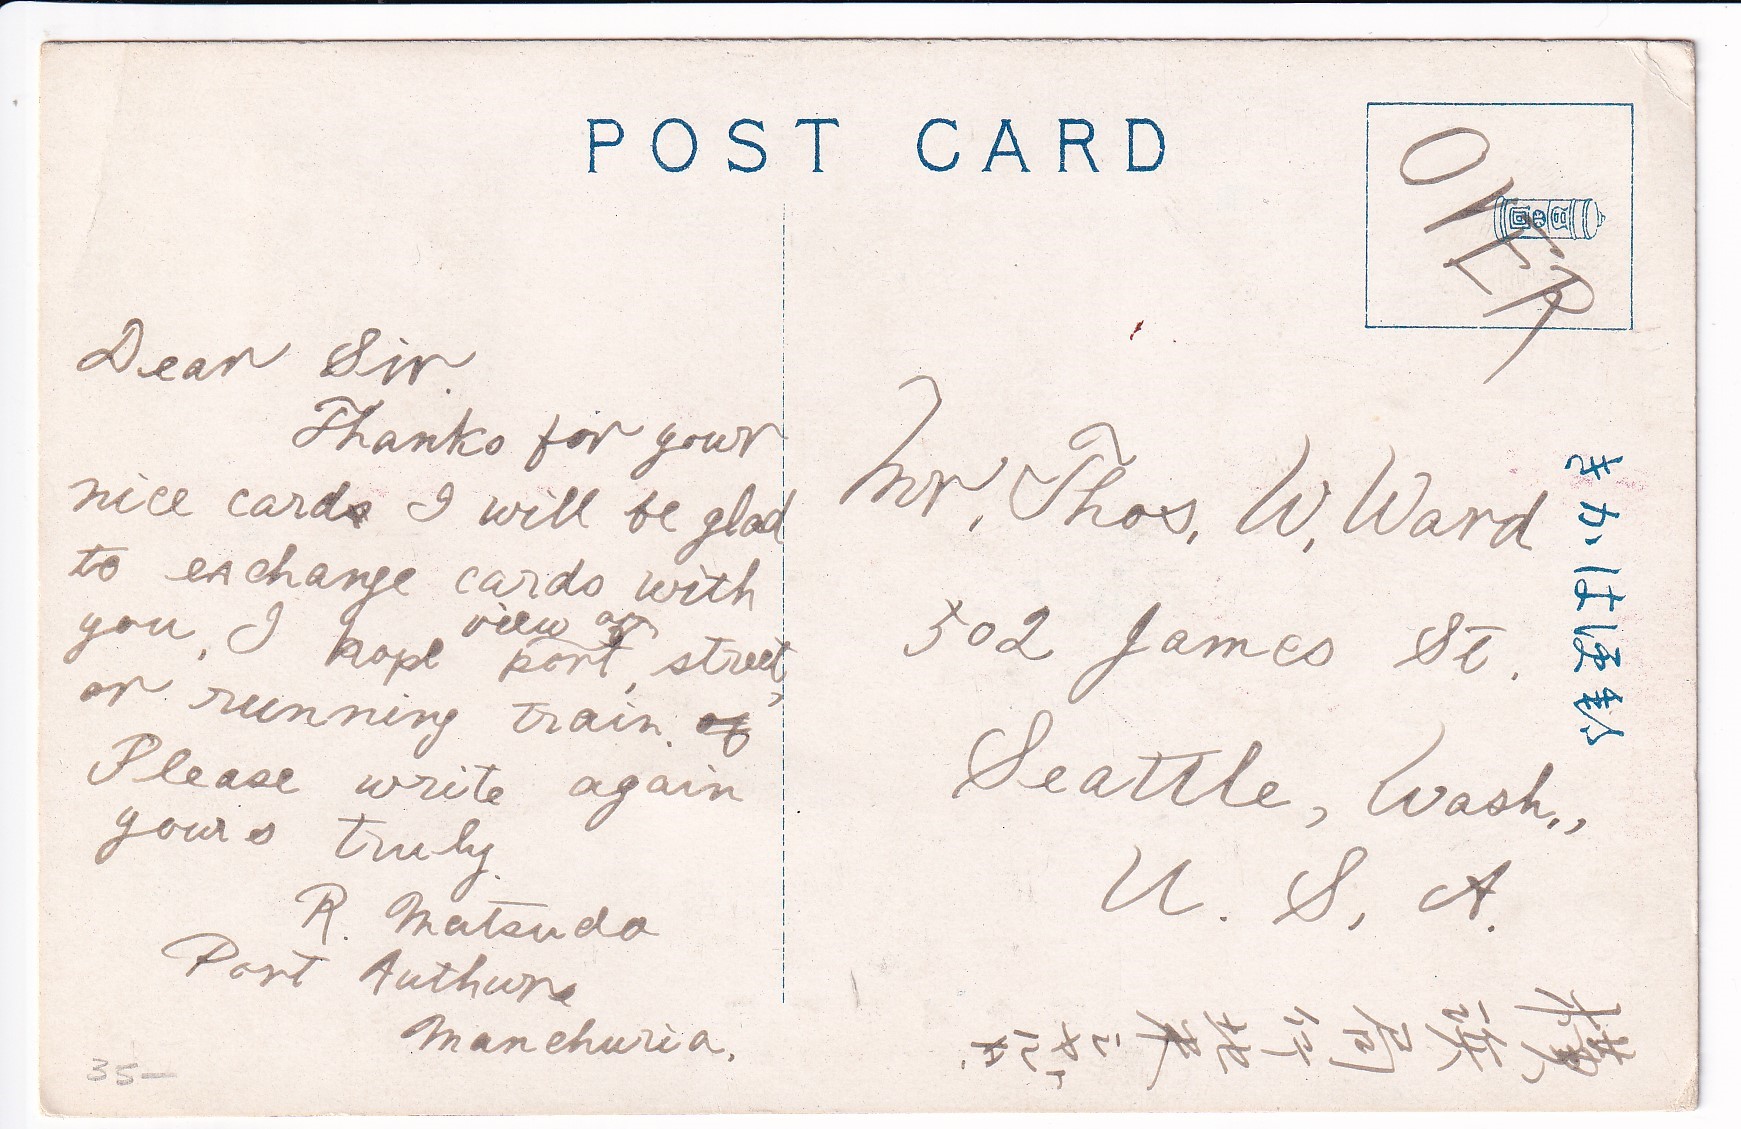 POST CARD
OVER
Dear Sir.
Thanks for your
nice cards I will be glad
to exchange cards with
you, I hope view on port, street,
or running train. of
Please write again
yours truly.
R. Matsuda
Port Authure
Manchuria.
35—
Mr. Thos. W. Ward
502 James St.
Seattle, Wash.,
U. S. A.
きかは便郵
横濱局行北米シヤトル